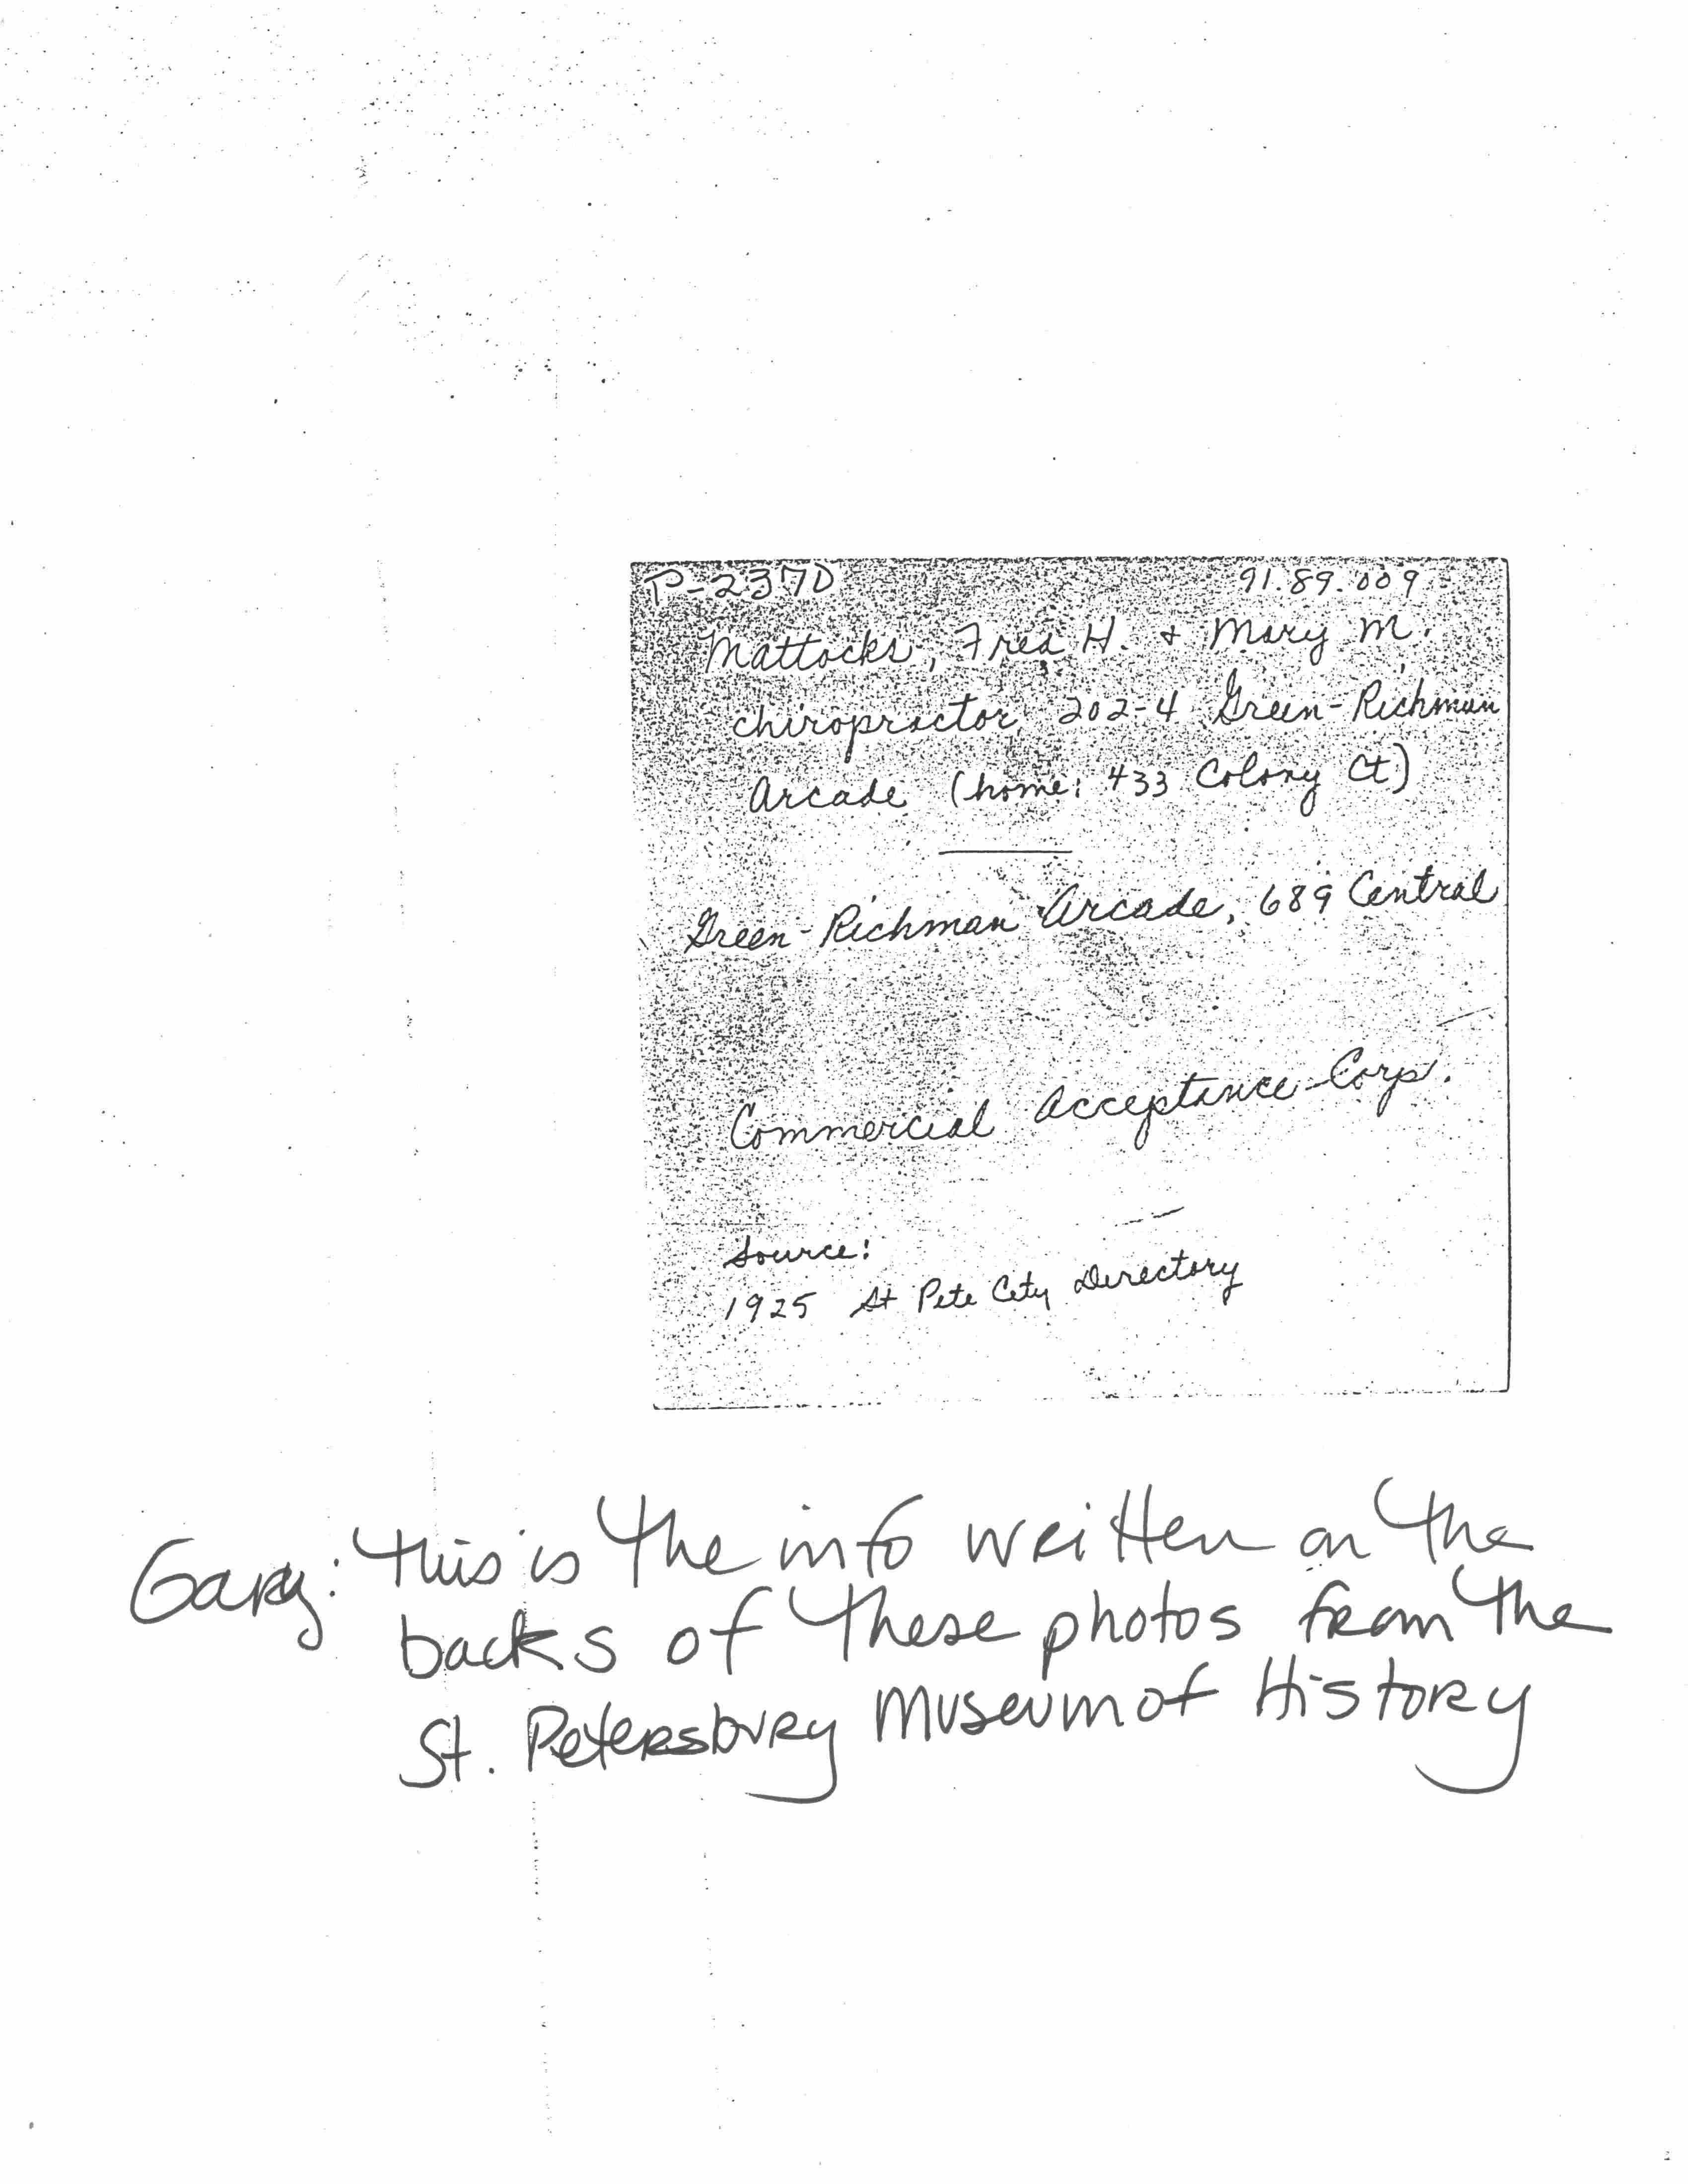 P-2370 91.89.009
Mattocks, Fred H. + Mary M.
chiropractor 202-4 Green-Richman
Arcade (home: 433 Colony Ct)
Green-Richman Arcade, 689 Central
Commercial Acceptance Corp.
Source:
1925 St Pete City Directory
Gary: this is the info written on the
backs of these photos from the
St. Petersburg Museum of History